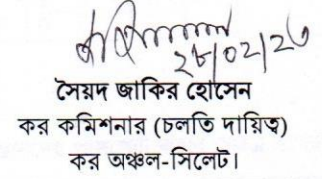 ২৮/০২/২৩
সৈয়দ জাকির হোসেন
কর কমিশনার (চলতি দায়িত্ব)
কর অঞ্চল-সিলেট।